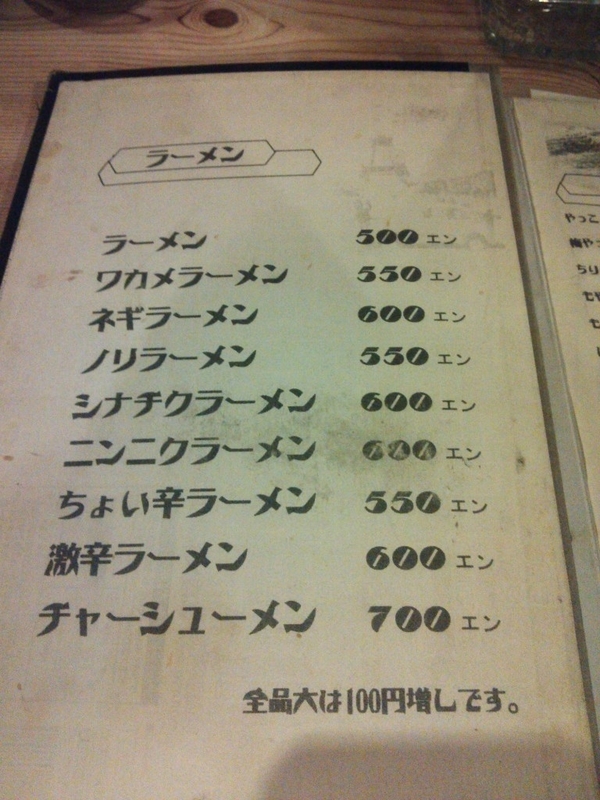 ラーメン
ラーメン 500 エン
ワカメラーメン 550 エン
ネギラーメン 600 エン
ノリラーメン 550 エン
シナチクラーメン 600 エン
ニンニクラーメン 600 エン
ちょい辛ラーメン 550 エン
激辛ラーメン 600 エン
チャーシューメン 700 エン
全品大は100円増しです。
やっこ